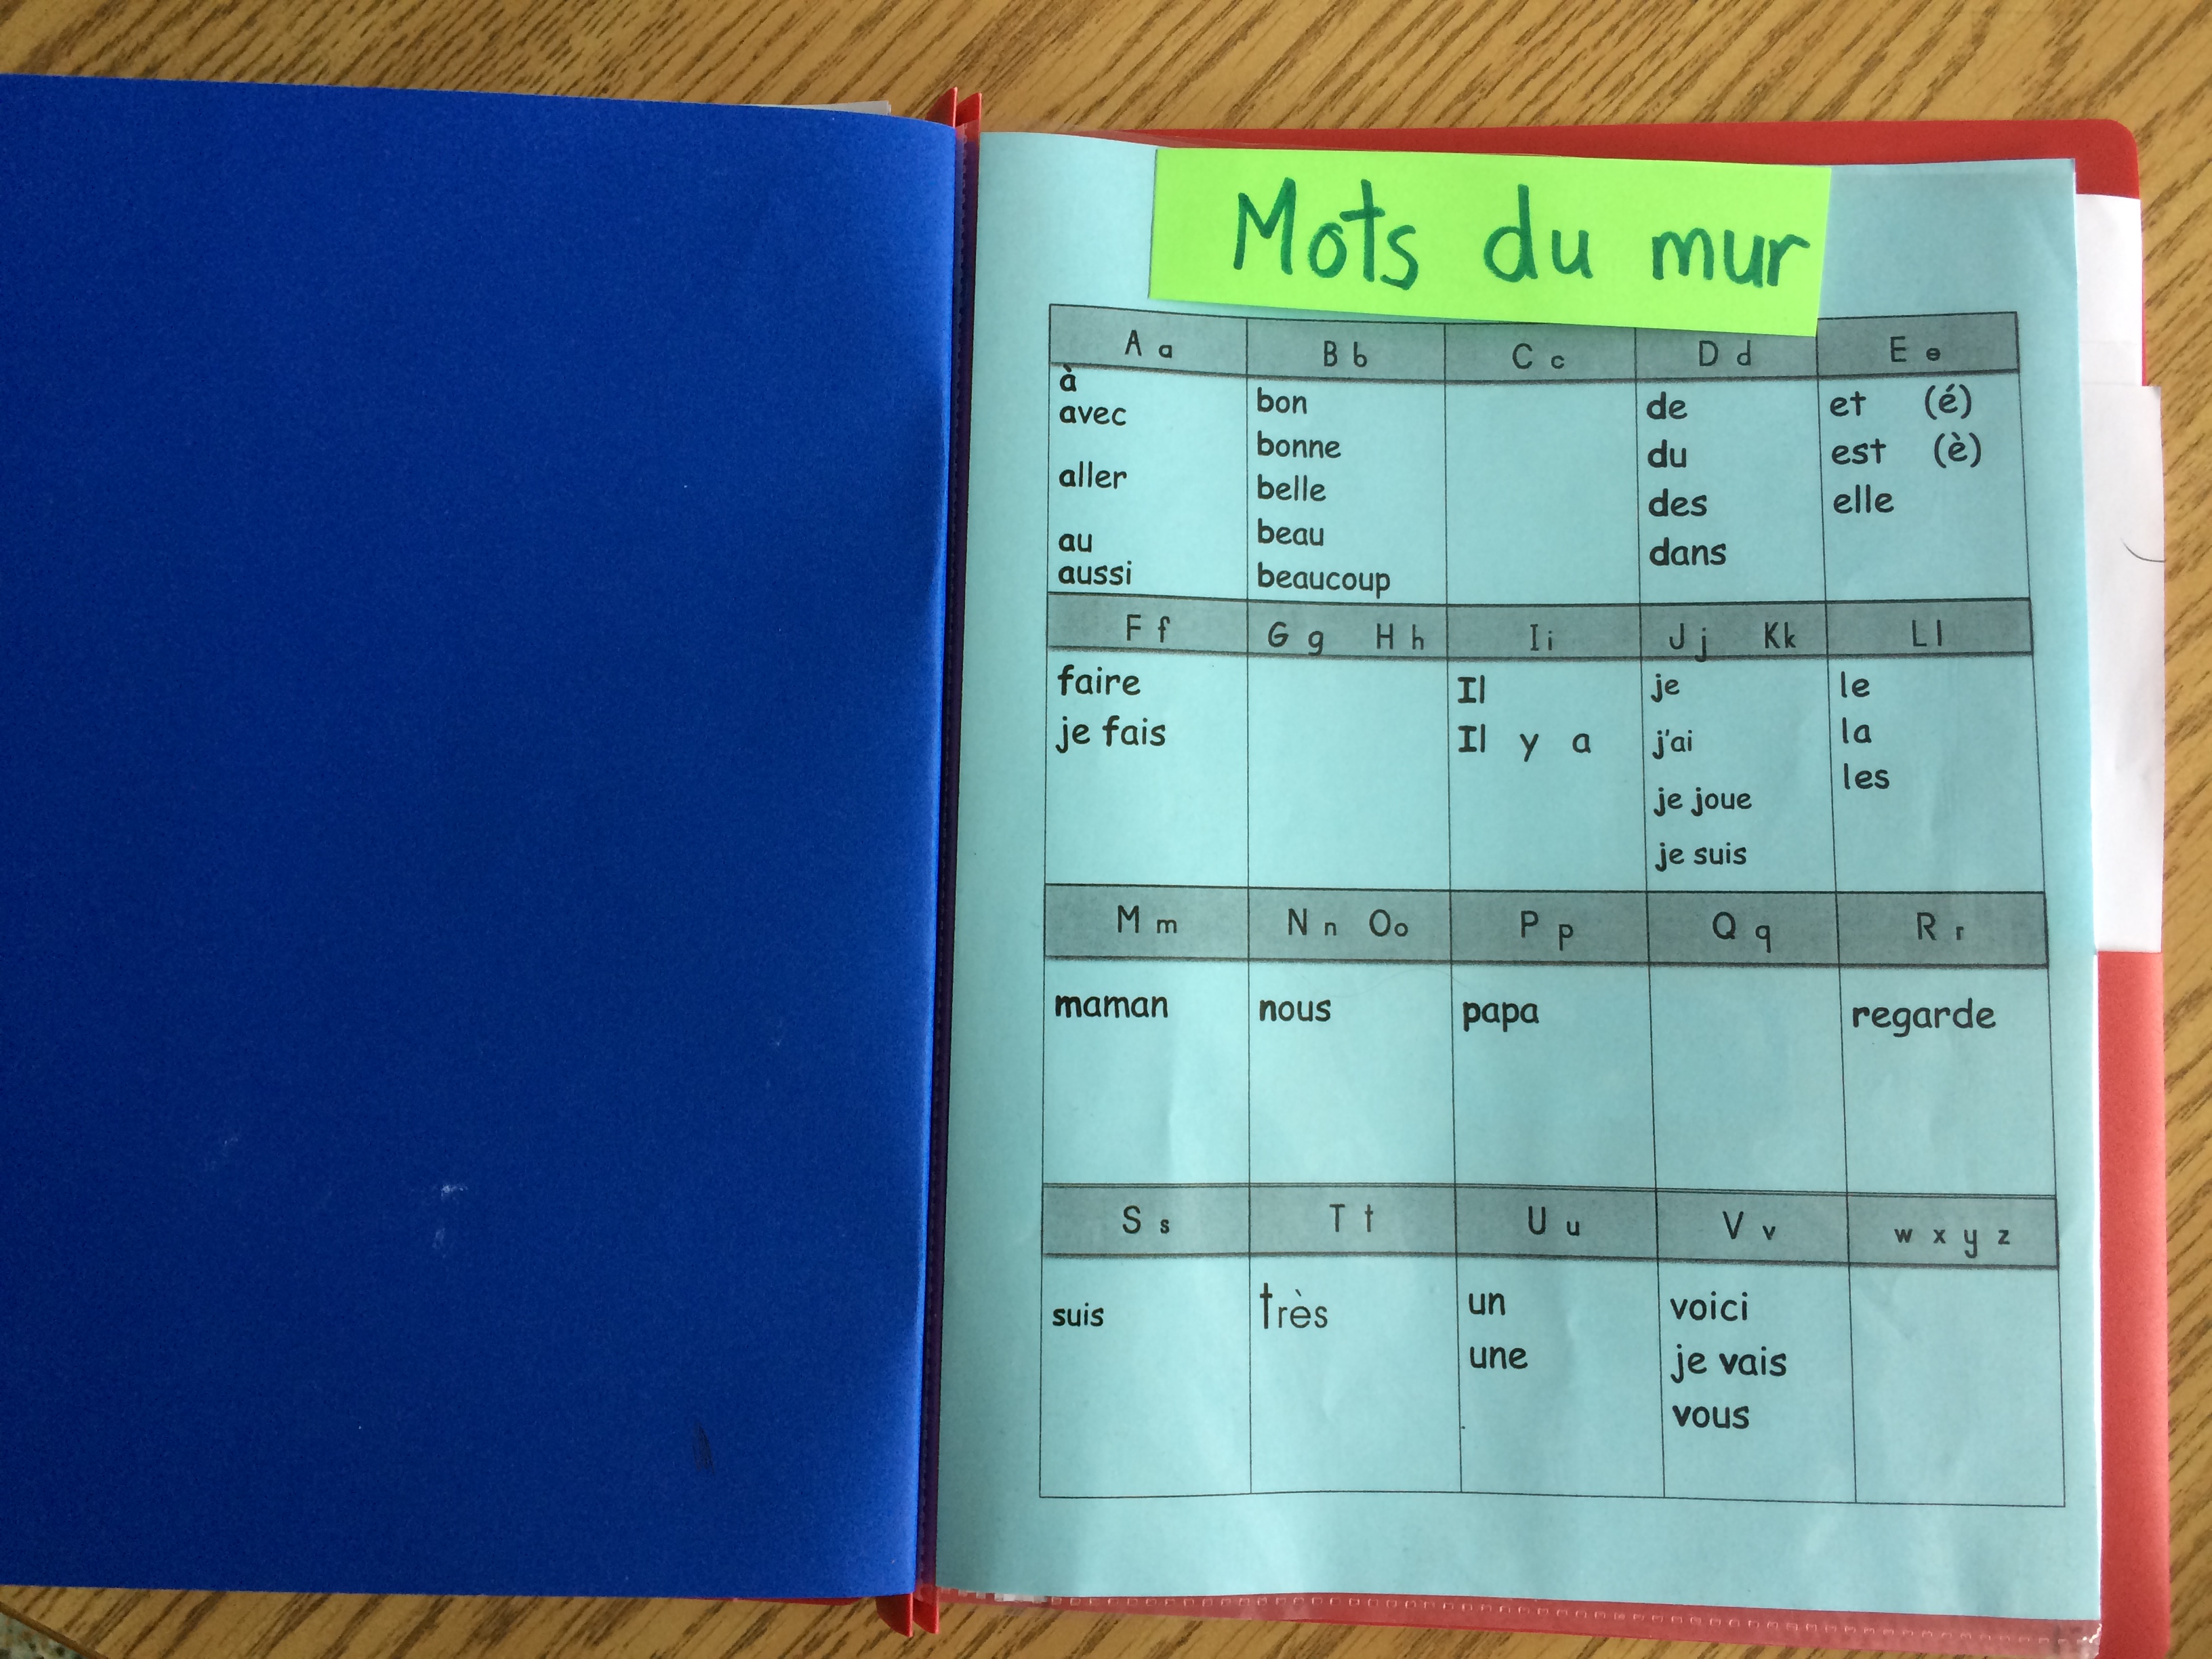 Mots du mur
A a
à
avec
aller
au
aussi
B b
bon
bonne
belle
beau
beaucoup
C c
D d
de
du
des
dans
E e
et (é)
est (è)
elle
F f
faire
je fais
G g H h
I i
Il
Il y a
J j Kk
je
j'ai
je joue
je suis
L l
le
la
les
M m
maman
N n Oo
nous
P p
papa
Q q
R r
regarde
S s
suis
T t
très
U u
un
une
V v
voici
je vais
vous
w x y z